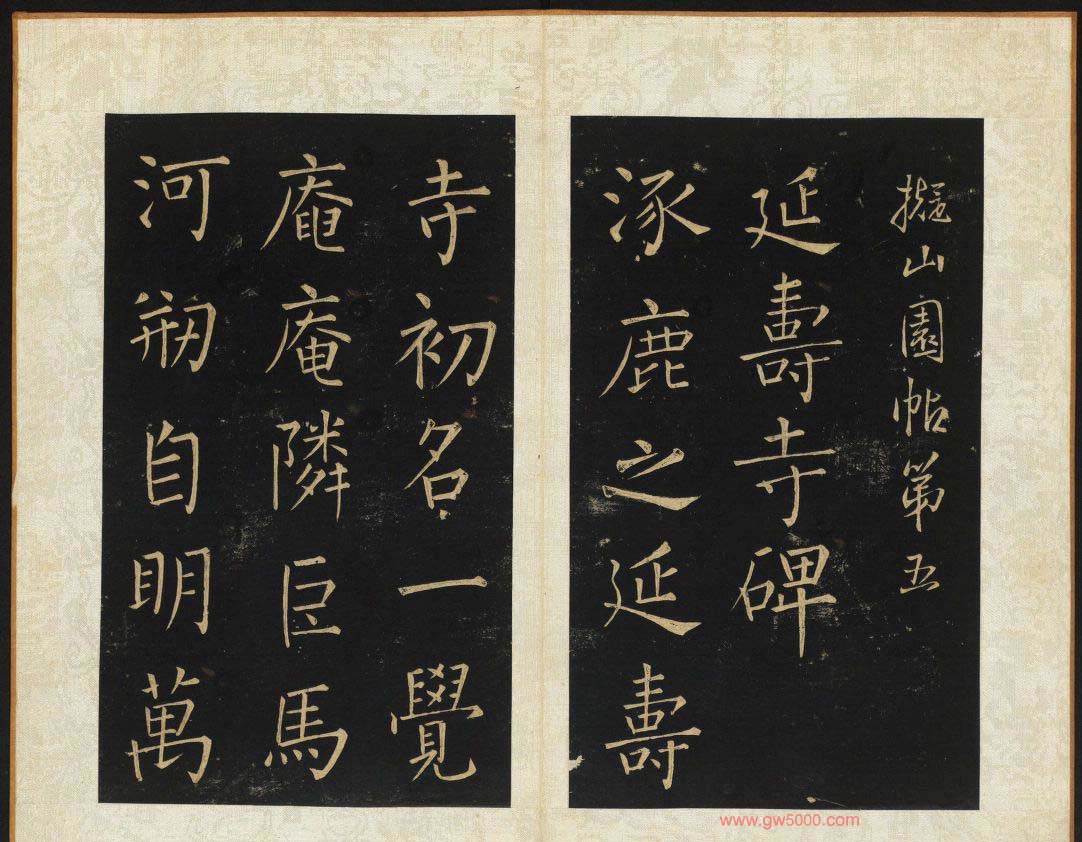 擬山園帖第五
延壽寺碑
涿鹿之延壽
寺初名一覺
庵庵隣巨馬
河刱自明萬
www.gw5000.com